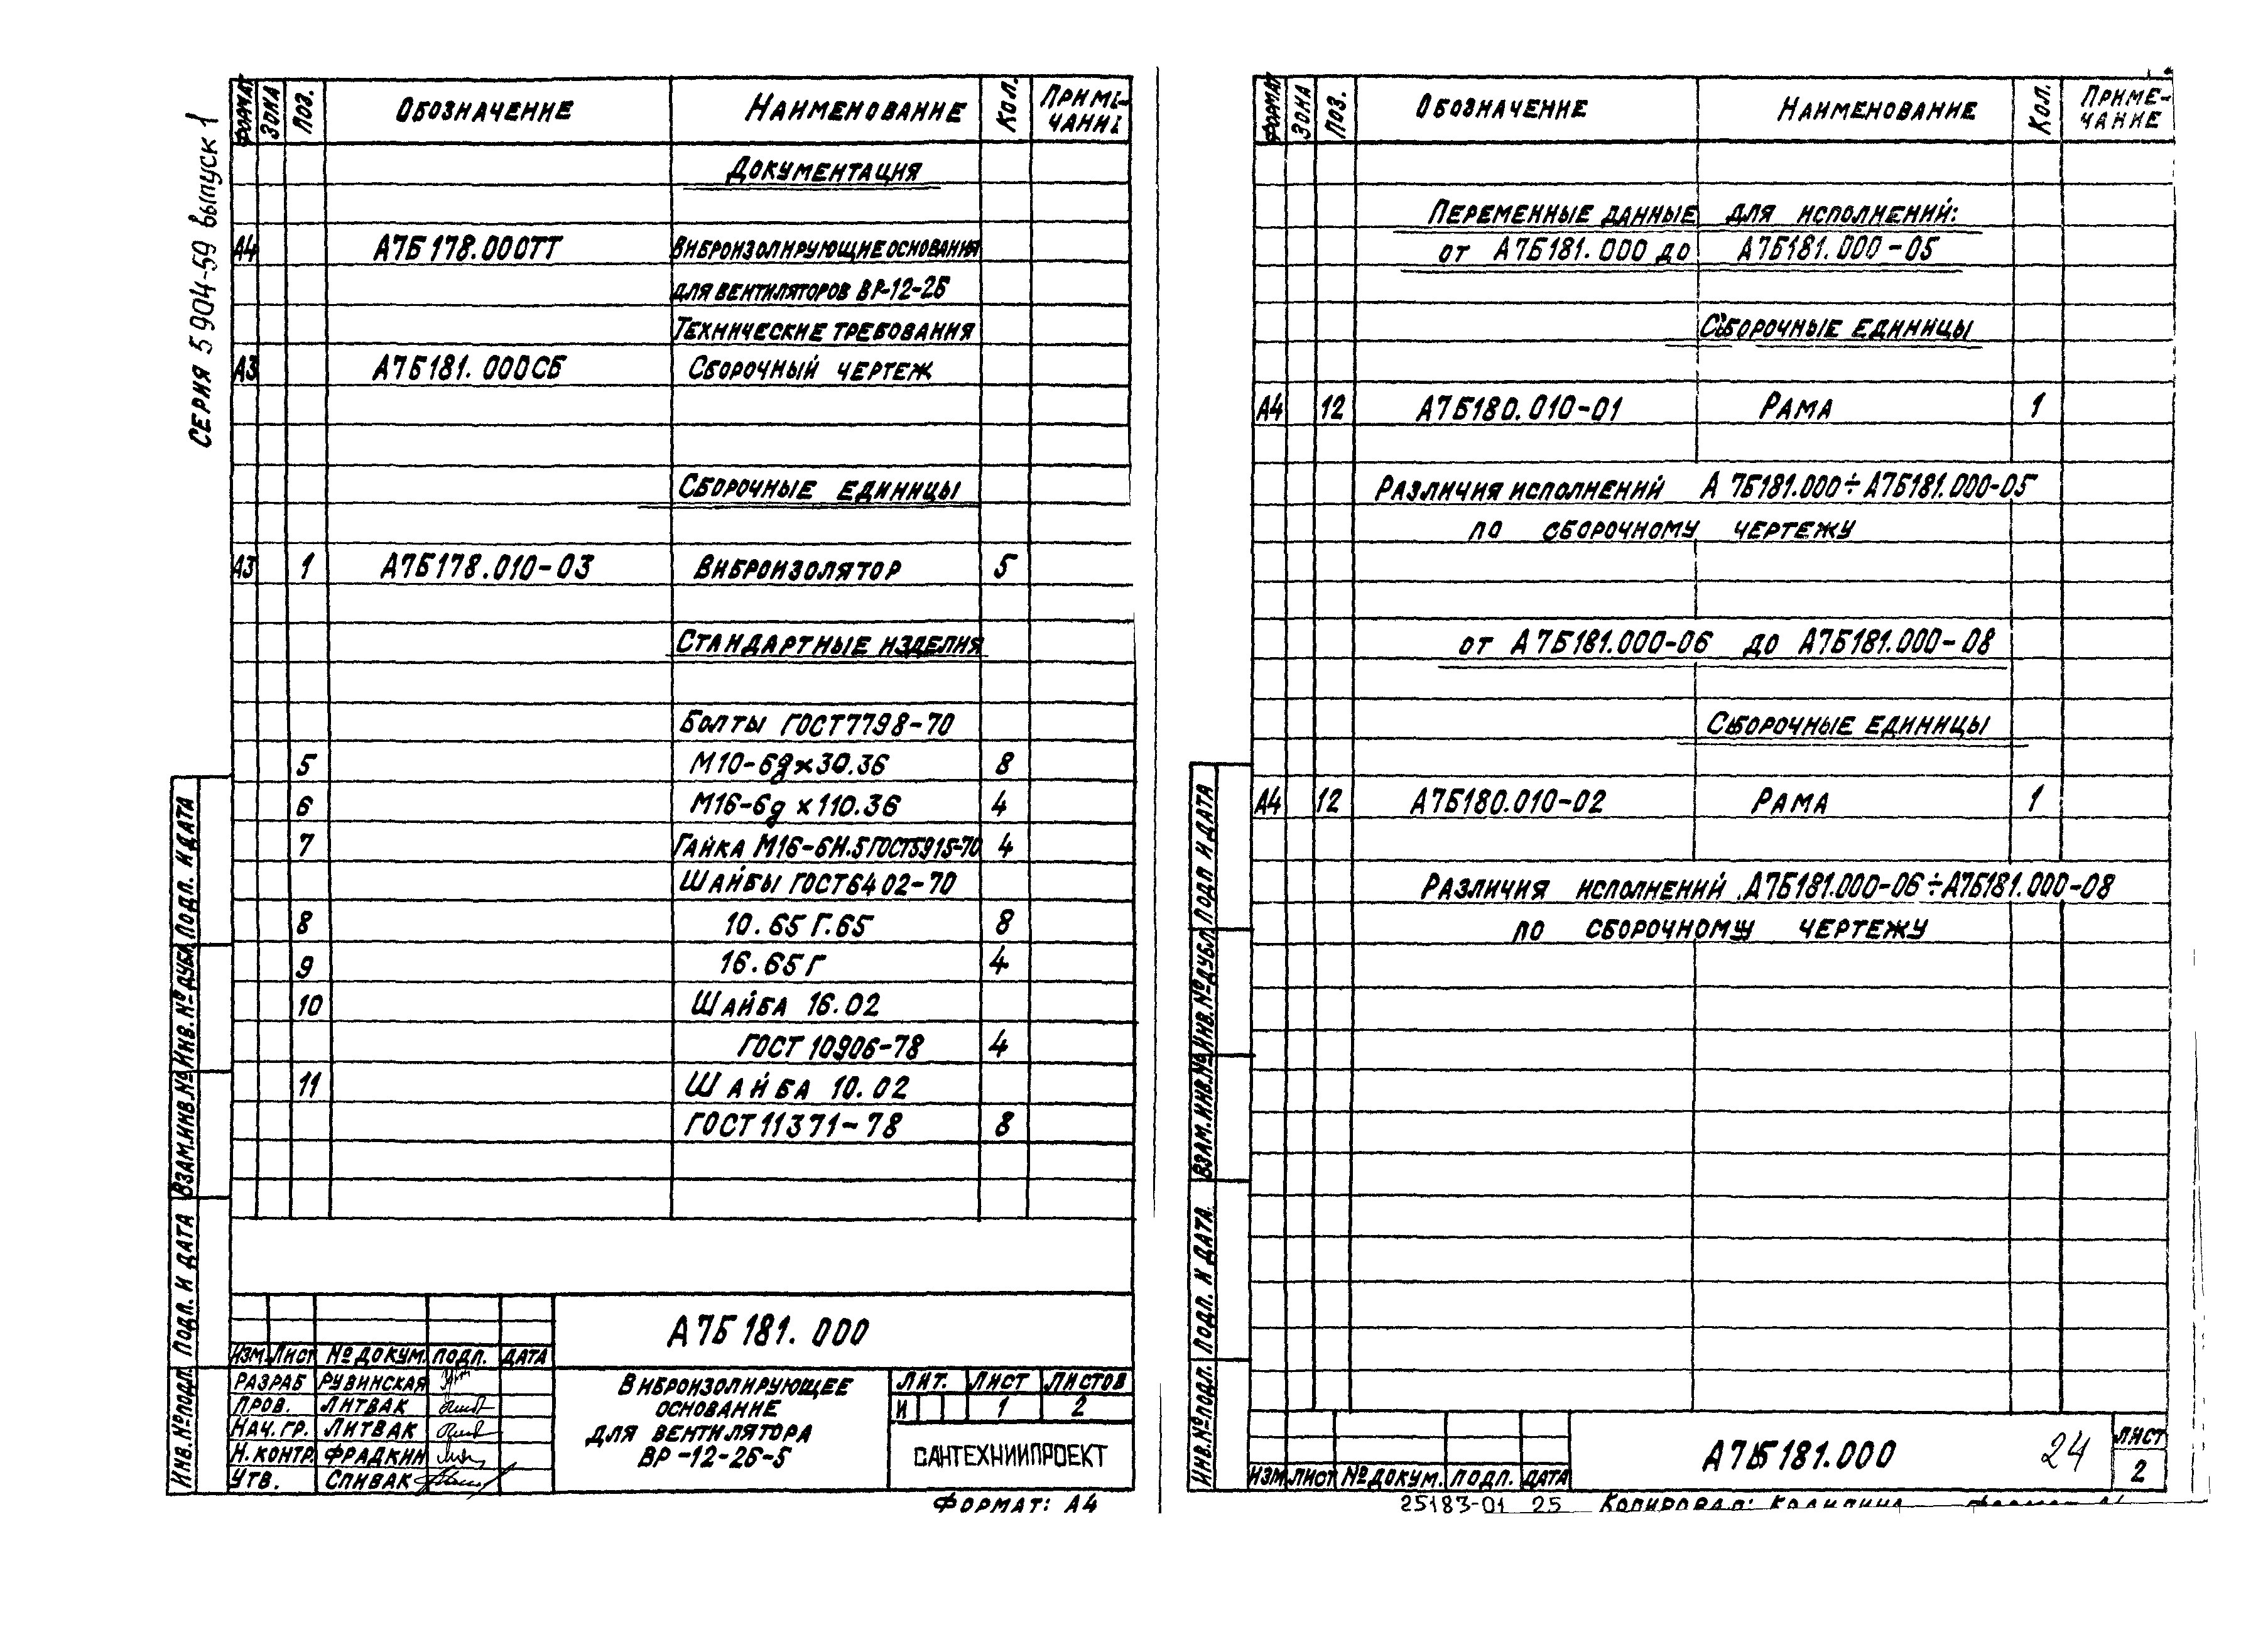 СЕРИЯ 5.904-59 выпуск 1
ФОРМАТ ЗОНА ПОЗ. ОБОЗНАЧЕНИЕ НАИМЕНОВАНИЕ КОЛ. ПРИМЕ-
ЧАНИЕ
ДОКУМЕНТАЦИЯ
А4 А7Б178.000ТТ ВИБРОИЗОЛИРУЮЩИЕ ОСНОВАНИЯ
ДЛЯ ВЕНТИЛЯТОРОВ ВР-12-26
ТЕХНИЧЕСКИЕ ТРЕБОВАНИЯ
А3 А7Б181.000СБ СБОРОЧНЫЙ ЧЕРТЕЖ
СБОРОЧНЫЕ ЕДИНИЦЫ
А3 1 А7Б178.010-03 ВИБРОИЗОЛЯТОР 5
СТАНДАРТНЫЕ ИЗДЕЛИЯ
БОЛТЫ ГОСТ7798-70
5 М10-6g×30.36 8
6 М16-6g×110.36 4
7 ГАЙКА М16-6Н.5 ГОСТ5915-70 4
ШАЙБЫ ГОСТ6402-70
8 10.65Г.65 8
9 16.65Г 4
10 ШАЙБА 16.02
ГОСТ 10906-78 4
11 ШАЙБА 10.02
ГОСТ 11371-78 8
ИНВ.№ПОДЛ. ПОДП. И ДАТА ВЗАМ.ИНВ.№ ИНВ.№ДУБЛ. ПОДП. И ДАТА
А7Б181.000
ИЗМ. ЛИСТ № ДОКУМ. ПОДП. ДАТА
РАЗРАБ РУВИНСКАЯ
ПРОВ. ЛИТВАК
НАЧ. ГР. ЛИТВАК
Н.КОНТР. ФРАДКИН
УТВ. СПИВАК
ВИБРОИЗОЛИРУЮЩЕЕ
ОСНОВАНИЕ
ДЛЯ ВЕНТИЛЯТОРА
ВР-12-26-5
ЛИТ. ЛИСТ ЛИСТОВ
И 1 2
САНТЕХНИИПРОЕКТ
ФОРМАТ: А4
ФОРМАТ ЗОНА ПОЗ. ОБОЗНАЧЕНИЕ НАИМЕНОВАНИЕ КОЛ. ПРИМЕ-
ЧАНИЕ
ПЕРЕМЕННЫЕ ДАННЫЕ ДЛЯ ИСПОЛНЕНИЙ:
от А7Б181.000 до А7Б181.000-05
СБОРОЧНЫЕ ЕДИНИЦЫ
А4 12 А7Б180.010-01 РАМА 1
РАЗЛИЧИЯ ИСПОЛНЕНИЙ А7Б181.000÷А7Б181.000-05
ПО СБОРОЧНОМУ ЧЕРТЕЖУ
от А7Б181.000-06 до А7Б181.000-08
СБОРОЧНЫЕ ЕДИНИЦЫ
А4 12 А7Б180.010-02 РАМА 1
РАЗЛИЧИЯ ИСПОЛНЕНИЙ А7Б181.000-06÷А7Б181.000-08
ПО СБОРОЧНОМУ ЧЕРТЕЖУ
ИНВ.№ПОДЛ. ПОДП. И ДАТА ВЗАМ.ИНВ.№ ИНВ.№ДУБЛ. ПОДП И ДАТА
ИЗМ ЛИСТ № ДОКУМ. ПОДП. ДАТА
А7Б181.000 24
ЛИСТ
2
25183-01 25 КОПИРОВАЛ: КАЛИНИНА